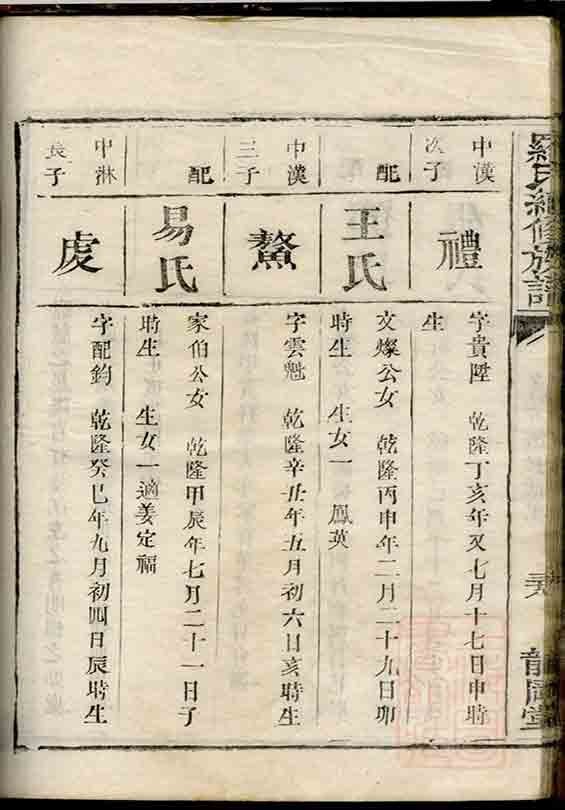 羅氏續修族譜
龍門堂
中漢
次子
禮
字貴陞 乾隆丁亥年又七月十七日申時
生
配
王氏
文燦公女 乾隆丙申年二月二十九日卯
時生 生女一 鳳英
中漢
三子
鰲
字雲魁 乾隆辛丑年五月初六日亥時生
配
易氏
家伯公女 乾隆甲辰年七月二十一日子
時生 生女一適姜定福
中淋
長子
虔
字配鈞 乾隆癸巳年九月初四日辰時生